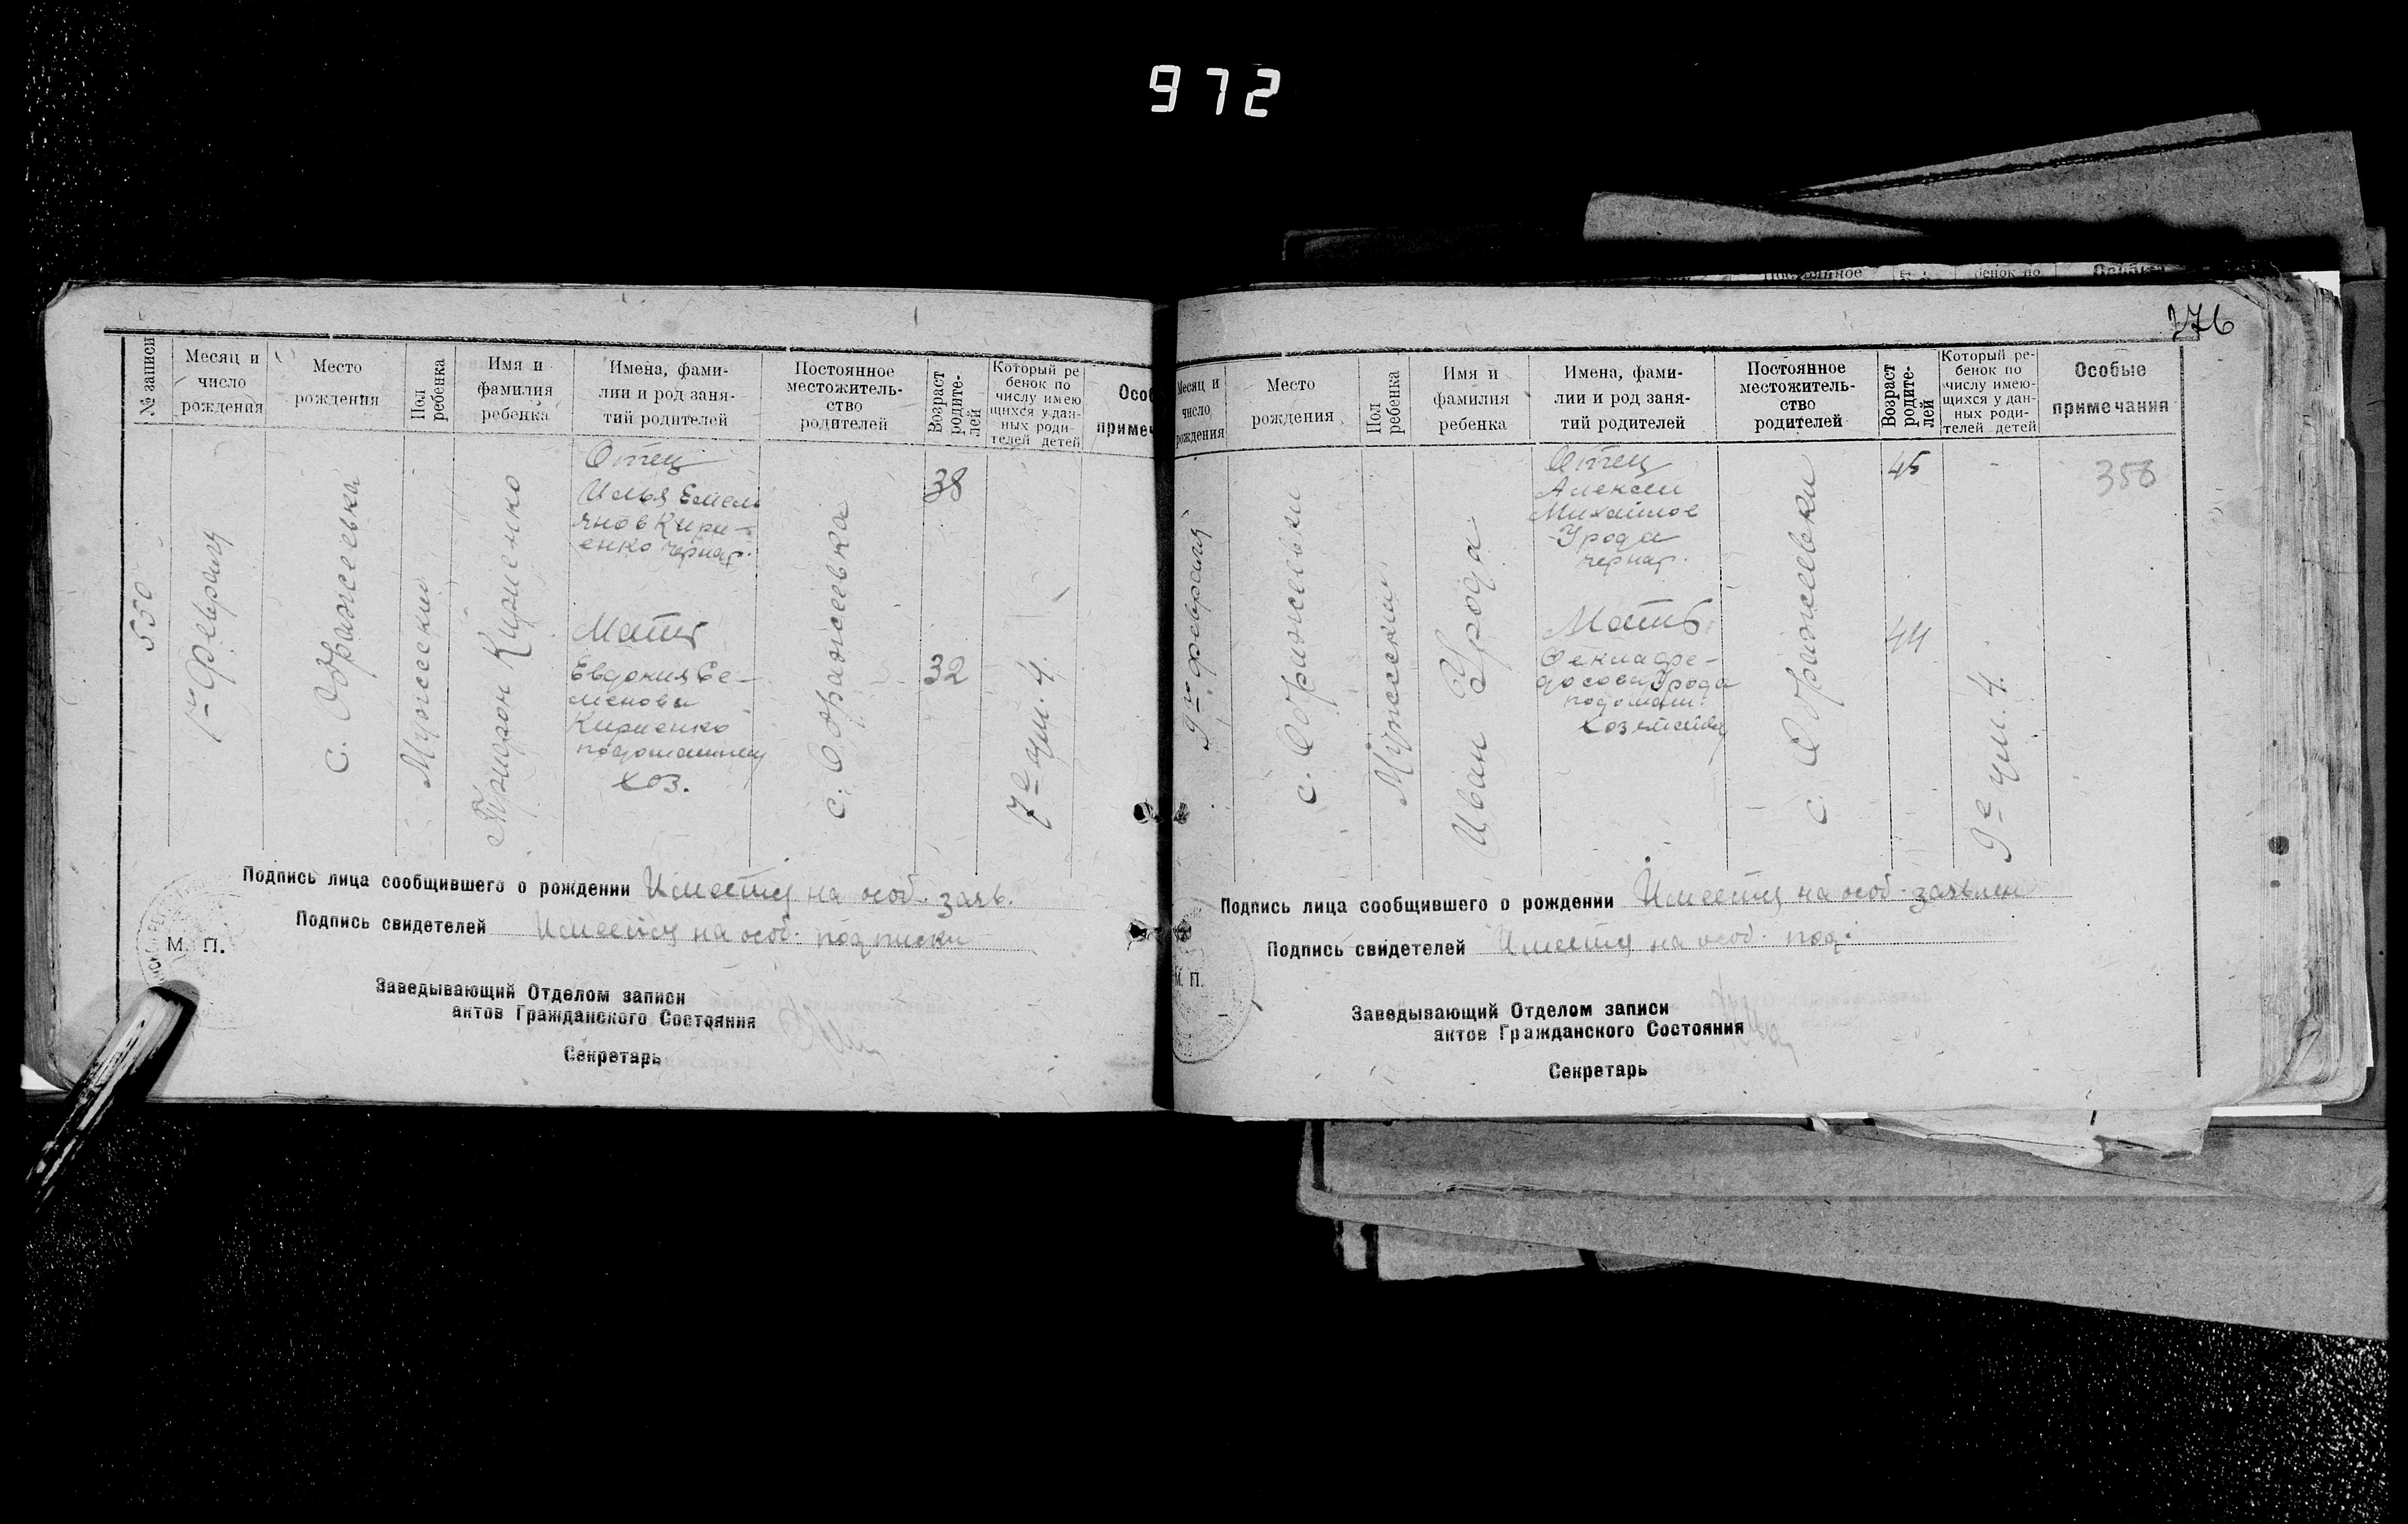 972
№ записи
Месяц и
число
рождения
Место
рождения
Пол
ребенка
Имя и
фамилия
ребенка
Имена, фами-
лии и род заня-
тий родителей
Постоянное
местожитель-
ство
родителей
Возраст
родите-
лей
Который ре
бенок по
числу имею
щихся у дан-
ных роди-
телей детей
Особ
примеч
550
1го Февраля
с. Ображеевка
Мужеский
Трифон Кириенко
Отец
Илья Емель
янов Кири-
енко чернар.
Мать
Евдокия Се-
менова
Кириенко
подомашнему
хоз.
с. Ображеевка
38
32
7е чи. 4.
Подпись лица сообщившего о рождении Имеется на особ. заяв.
Подпись свидетелей Имеется на особ. подписки
М. П.
Заведывающий Отделом записи
актов Гражданского Состояния
Секретарь
Постоянное
бенок по
Особые
276
Месяц и
число
рождения
Место
рождения
Пол
ребенка
Имя и
фамилия
ребенка
Имена, фами-
лии и род заня-
тий родителей
Постоянное
местожитель-
ство
родителей
Возраст
родите-
лей
Который ре-
бенок по
числу имею-
щихся у дан-
ных роди-
телей детей
Особые
примечания
9го февраля
с. Ображеевки
Мужеский
Иван Урода
Отец
Алексей
Михайлов
Урода
чернар.
Мать
Фекла Фе-
Урода
подомаш.
хозяйства
с. Ображеевки
45
44
9е чи. 4.
358
Подпись лица сообщившего о рождении Имеется на особ. заявлен
Подпись свидетелей Имеется на особ. под.
М. П.
Заведывающий Отделом записи
актов Гражданского Состояния
Секретарь